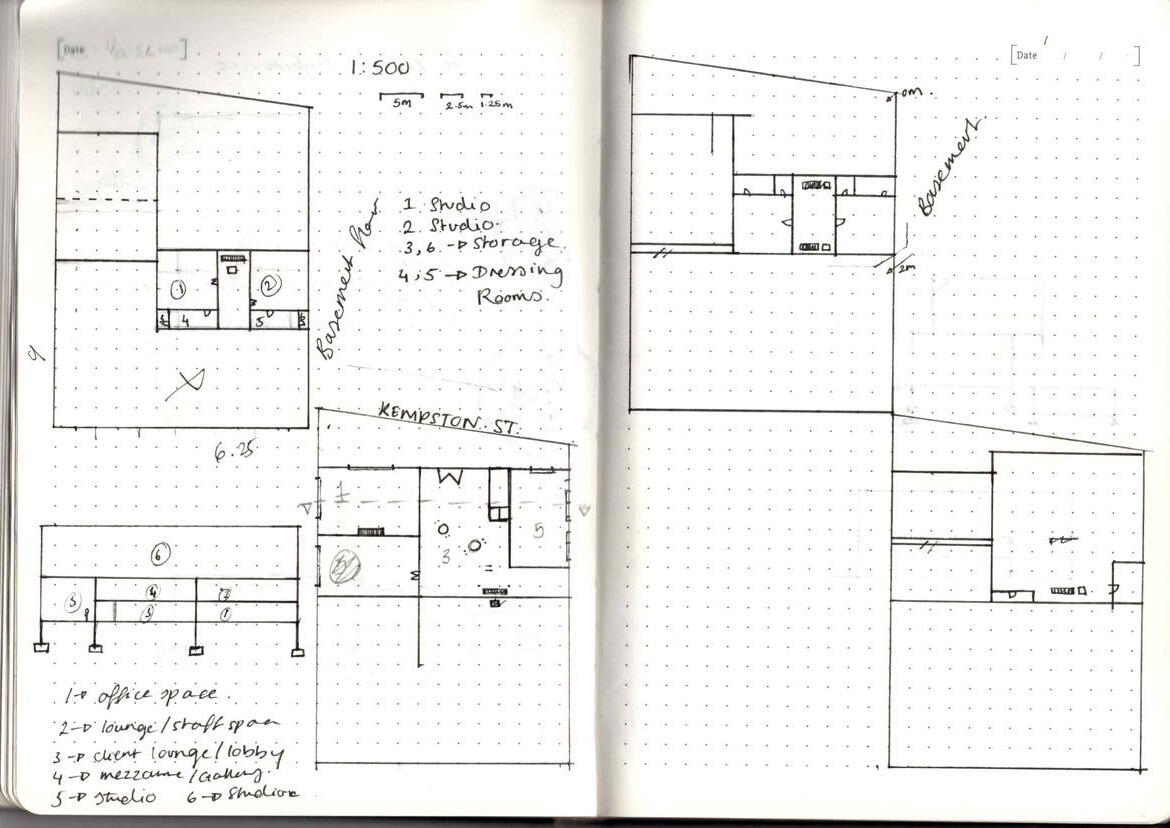 [Date / / ]
1:500
5m 2.5m 1.25m
1 Studio
2 Studio
3,6 → Storage
4,5 → Dressing
Rooms.
Basement
1 2
4 5
9
X
6.25
KEMPSTON ST.
1
3 5
6
5 4 2
3 1
1→ office space
2→ lounge/staff space
3→ client lounge/lobby
4→ mezzanine/Gallery
5→ Studio 6→ Studio
[Date / / / ]
0m
Basement
2m